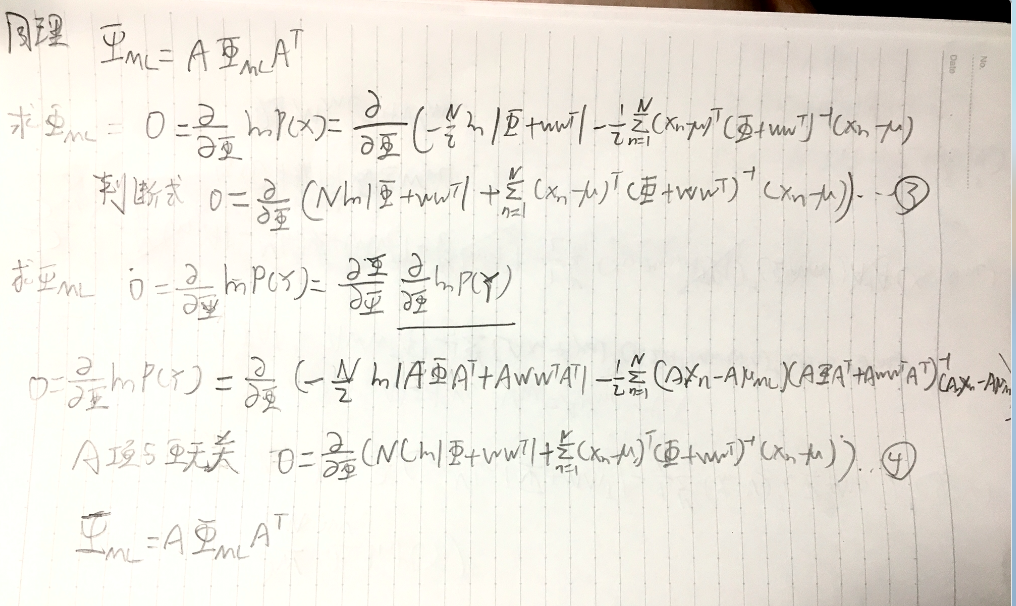 同理 Ψ_ML = AΦ_ML A^T
求Φ_ML = 0 = ∂/∂Φ ln P(X) = ∂/∂Φ (-N/2 ln|Φ+ww^T| - 1/2 Σ_{n=1}^N (x_n-μ)^T (Φ+ww^T)^{-1} (x_n-μ)
判断式 0 = ∂/∂Φ (N ln|Φ+ww^T| + Σ_{n=1}^N (x_n-μ)^T (Φ+ww^T)^{-1} (x_n-μ)) ... ③
求Ψ_ML 0 = ∂/∂Ψ ln P(Y) = ∂Φ/∂Ψ ∂/∂Φ ln P(Y)
0 = ∂/∂Φ ln P(Y) = ∂/∂Φ (-N/2 ln|AΦA^T + Aww^TA^T| - 1/2 Σ_{n=1}^N (Ax_n - Aμ_ML)(AΦA^T + Aww^TA^T)^{-1} (Ax_n - Aμ
A项与Φ无关 0 = ∂/∂Φ (N(ln|Φ+ww^T| + Σ_{n=1}^N (x_n-μ)^T (Φ+ww^T)^{-1} (x_n-μ)) ... ④
Ψ_ML = AΦ_ML A^T
No.
Date